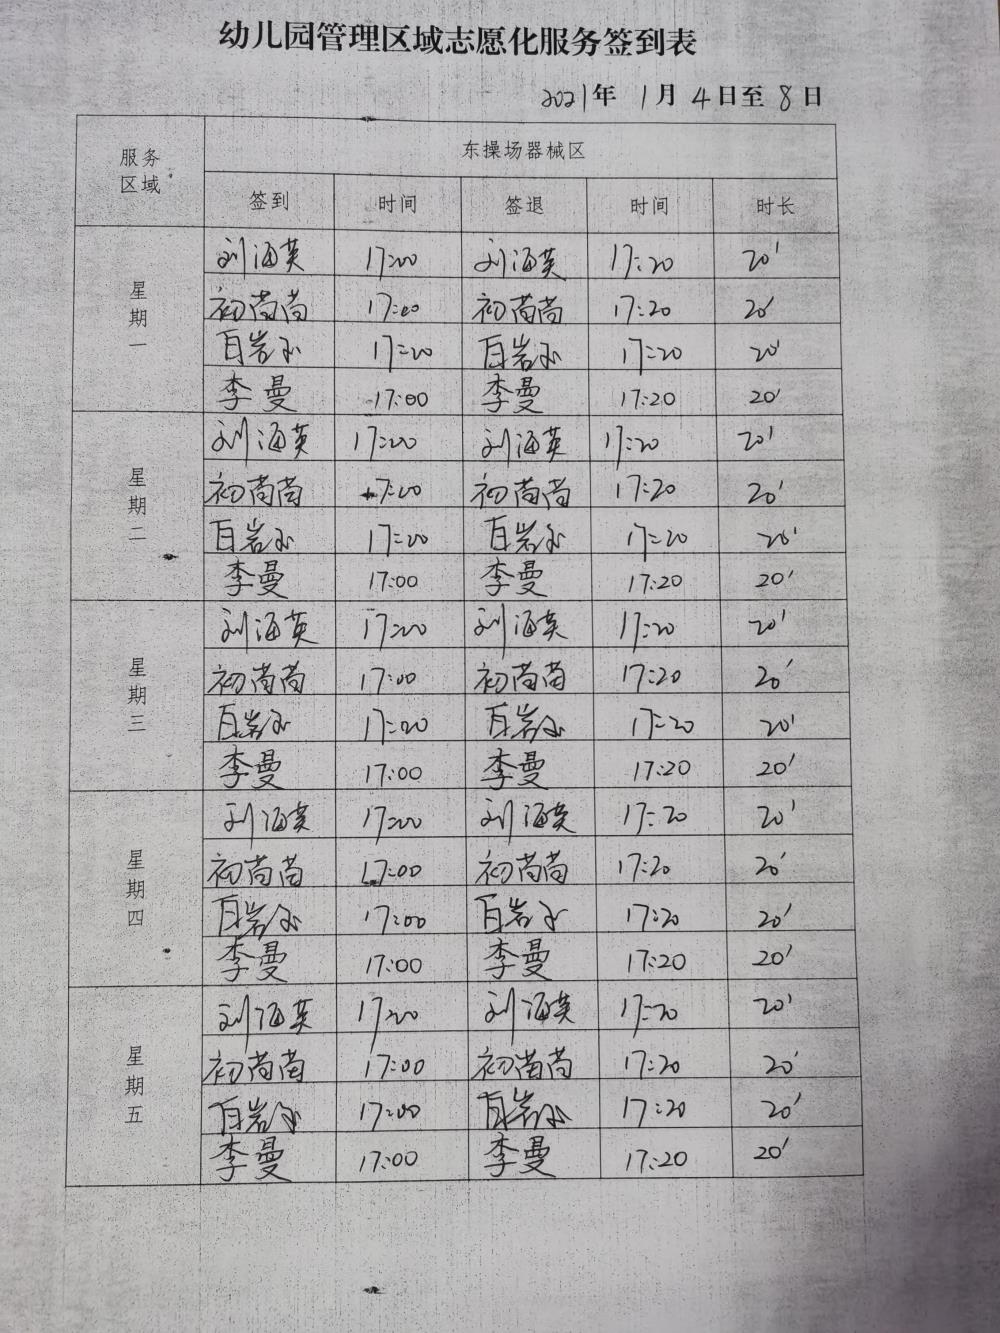 幼儿园管理区域志愿化服务签到表
2021年 1月 4日至 8日
服务区域 东操场器械区
签到 时间 签退 时间 时长
星期一 刘海英 17:00 刘海英 17:20 20'
初苗苗 17:00 初苗苗 17:20 20'
百岩 17:00 百岩 17:20 20'
李曼 17:00 李曼 17:20 20'
星期二 刘海英 17:00 刘海英 17:20 20'
初苗苗 17:00 初苗苗 17:20 20'
百岩 17:00 百岩 17:20 20'
李曼 17:00 李曼 17:20 20'
星期三 刘海英 17:00 刘海英 17:20 20'
初苗苗 17:00 初苗苗 17:20 20'
百岩 17:00 百岩 17:20 20'
李曼 17:00 李曼 17:20 20'
星期四 刘海英 17:00 刘海英 17:20 20'
初苗苗 17:00 初苗苗 17:20 20'
百岩 17:00 百岩 17:20 20'
李曼 17:00 李曼 17:20 20'
星期五 刘海英 17:00 刘海英 17:20 20'
初苗苗 17:00 初苗苗 17:20 20'
百岩 17:00 百岩 17:20 20'
李曼 17:00 李曼 17:20 20'